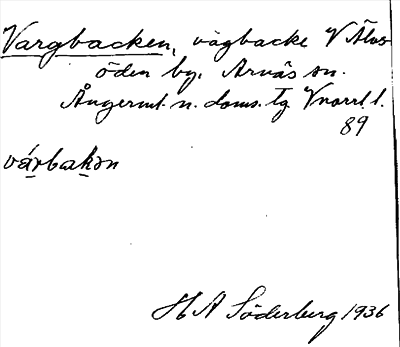 Vargbacken, vägbacke V Älvs-
öden by. Arnäs sn.
Ångerml. n. doms. tg Vnorrl. l.
89
várbakən
H A Söderberg 1936